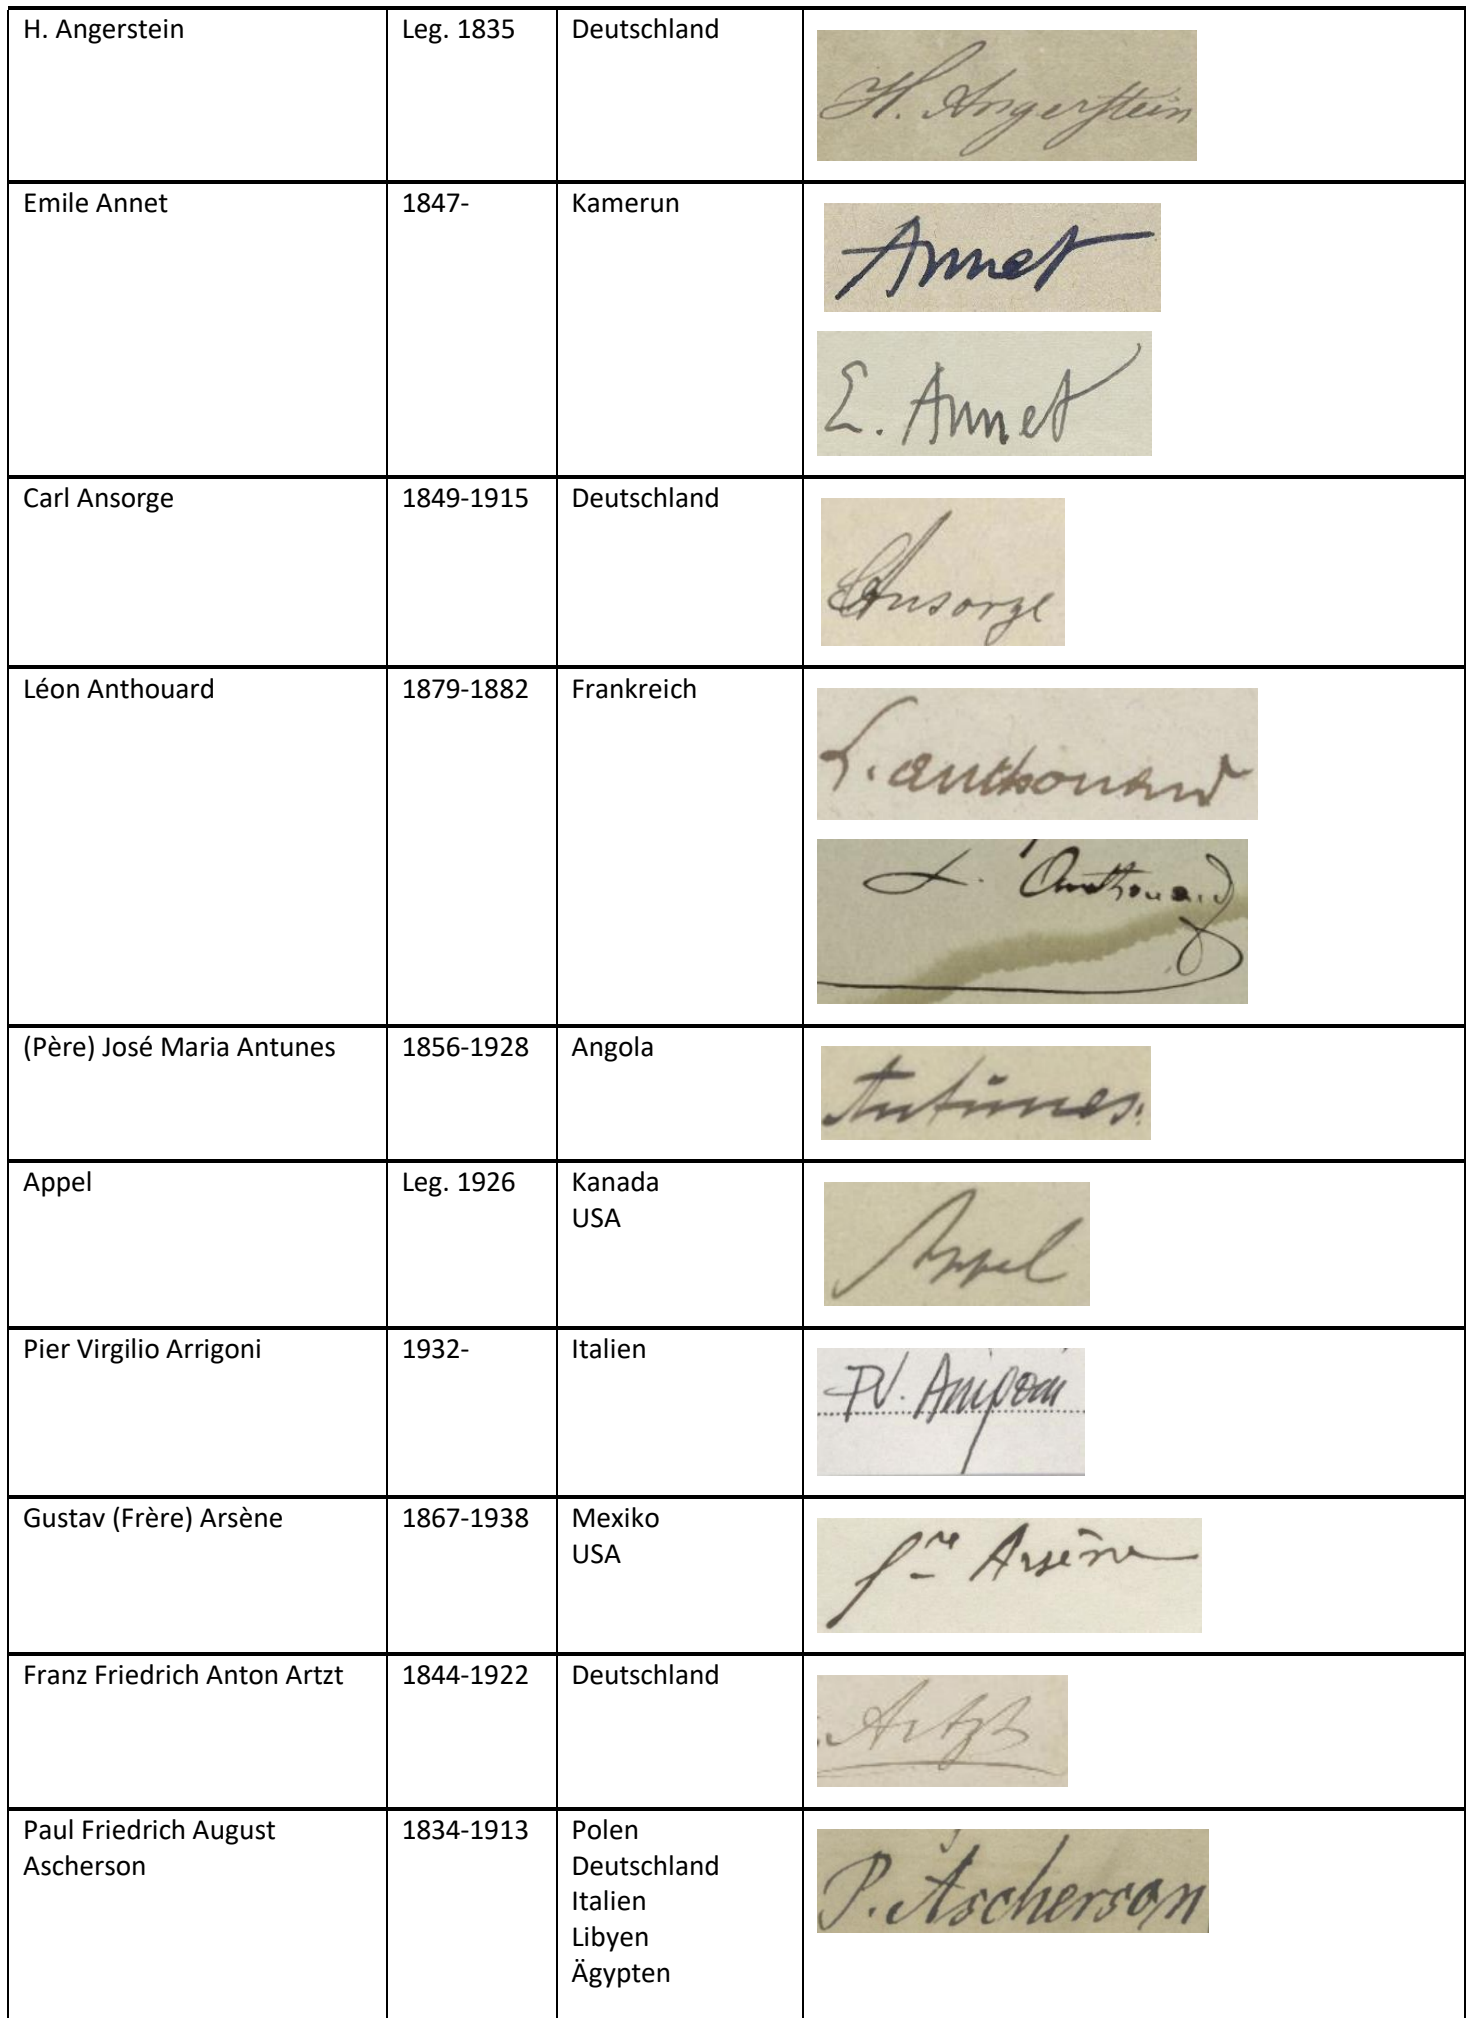 H. Angerstein
Leg. 1835
Deutschland
H. Angerstein
Emile Annet
1847-
Kamerun
Annet
E. Annet
Carl Ansorge
1849-1915
Deutschland
CAnsorge
Léon Anthouard
1879-1882
Frankreich
L. anthouard
L. Anthouard
(Père) José Maria Antunes
1856-1928
Angola
Antunes.
Appel
Leg. 1926
Kanada
USA
Appel
Pier Virgilio Arrigoni
1932-
Italien
PV. Arrigoni
Gustav (Frère) Arsène
1867-1938
Mexiko
USA
fre Arsène
Franz Friedrich Anton Artzt
1844-1922
Deutschland
Artzt
Paul Friedrich August
Ascherson
1834-1913
Polen
Deutschland
Italien
Libyen
Ägypten
P. Ascherson